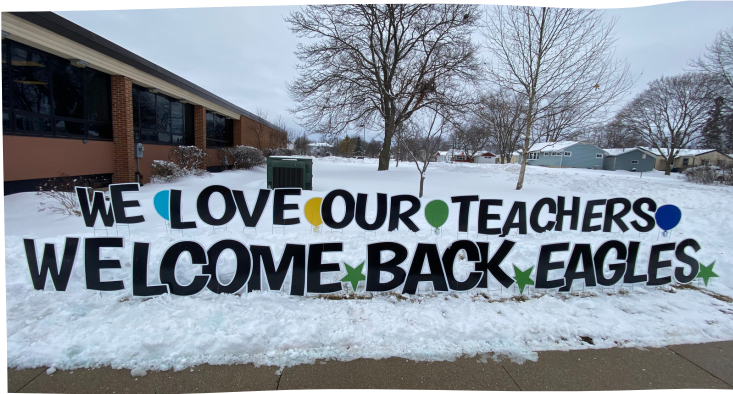 WE LOVE OUR TEACHERS
WELCOME BACK EAGLES